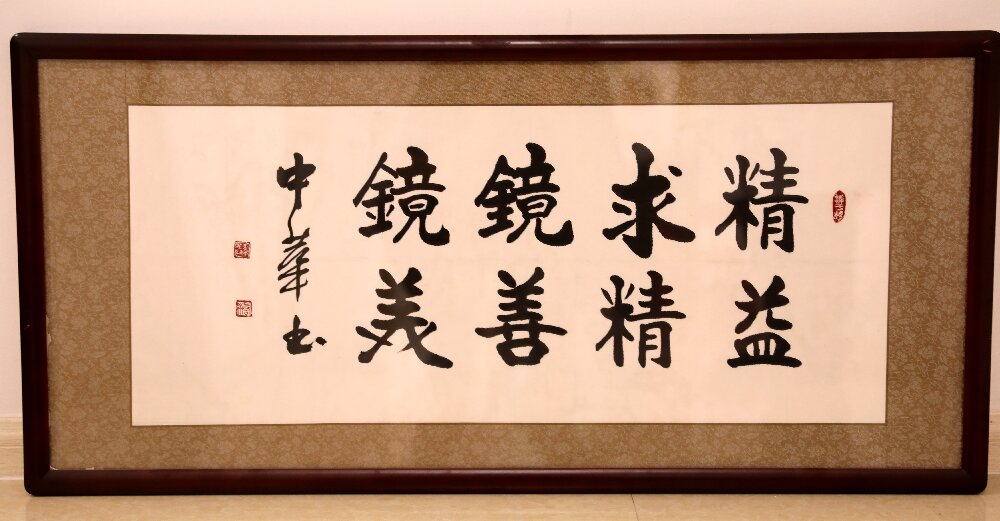 精益
求精
鏡善
鏡美
中華书